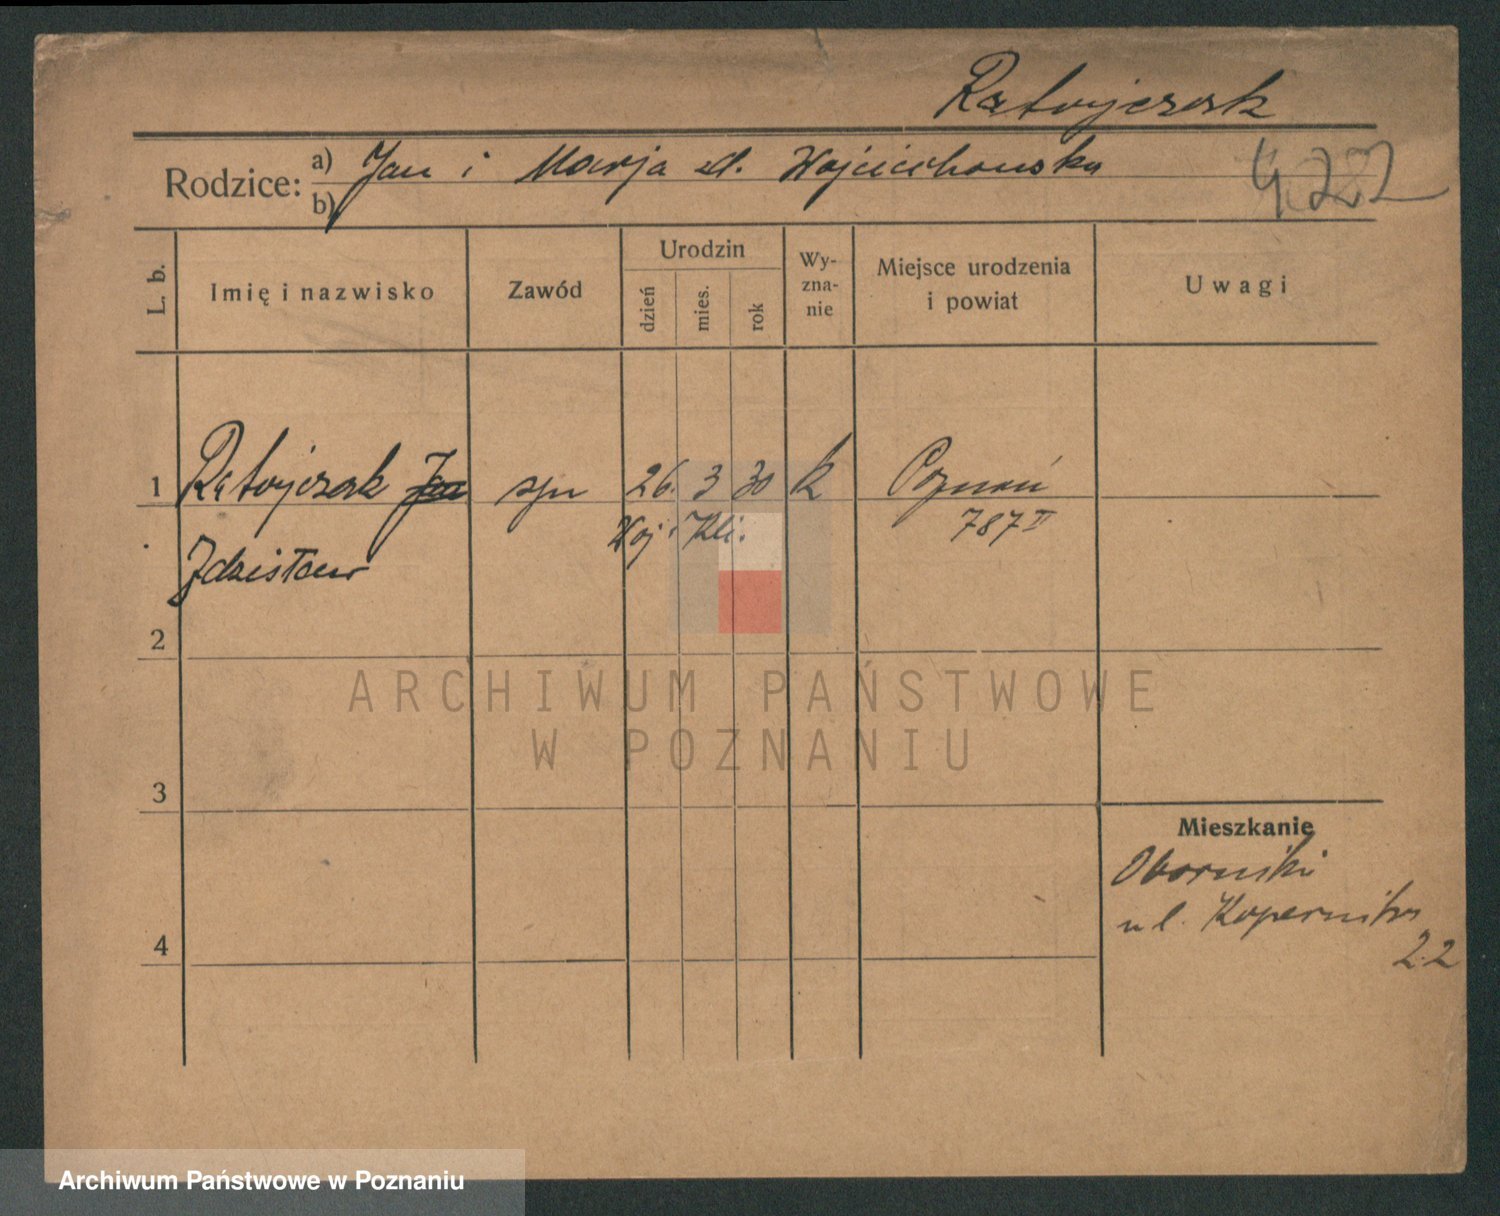 Ratajczak
Rodzice: a) Jan i Marja zd. Wojciechowska
b)
4222
L. b.
Imię i nazwisko
Zawód
Urodzin
dzień
mies.
rok
Wy-
zna-
nie
Miejsce urodzenia
i powiat
Uwagi
1 Ratajczak Jan syn 26. 3 30 k Poznań
Woj. Kli. 787 II
Zdzisław
2
3
4
Mieszkanie
Oborniki
ul. Kopernika
22
ARCHIWUM PAŃSTWOWE
W POZNANIU
Archiwum Państwowe w Poznaniu